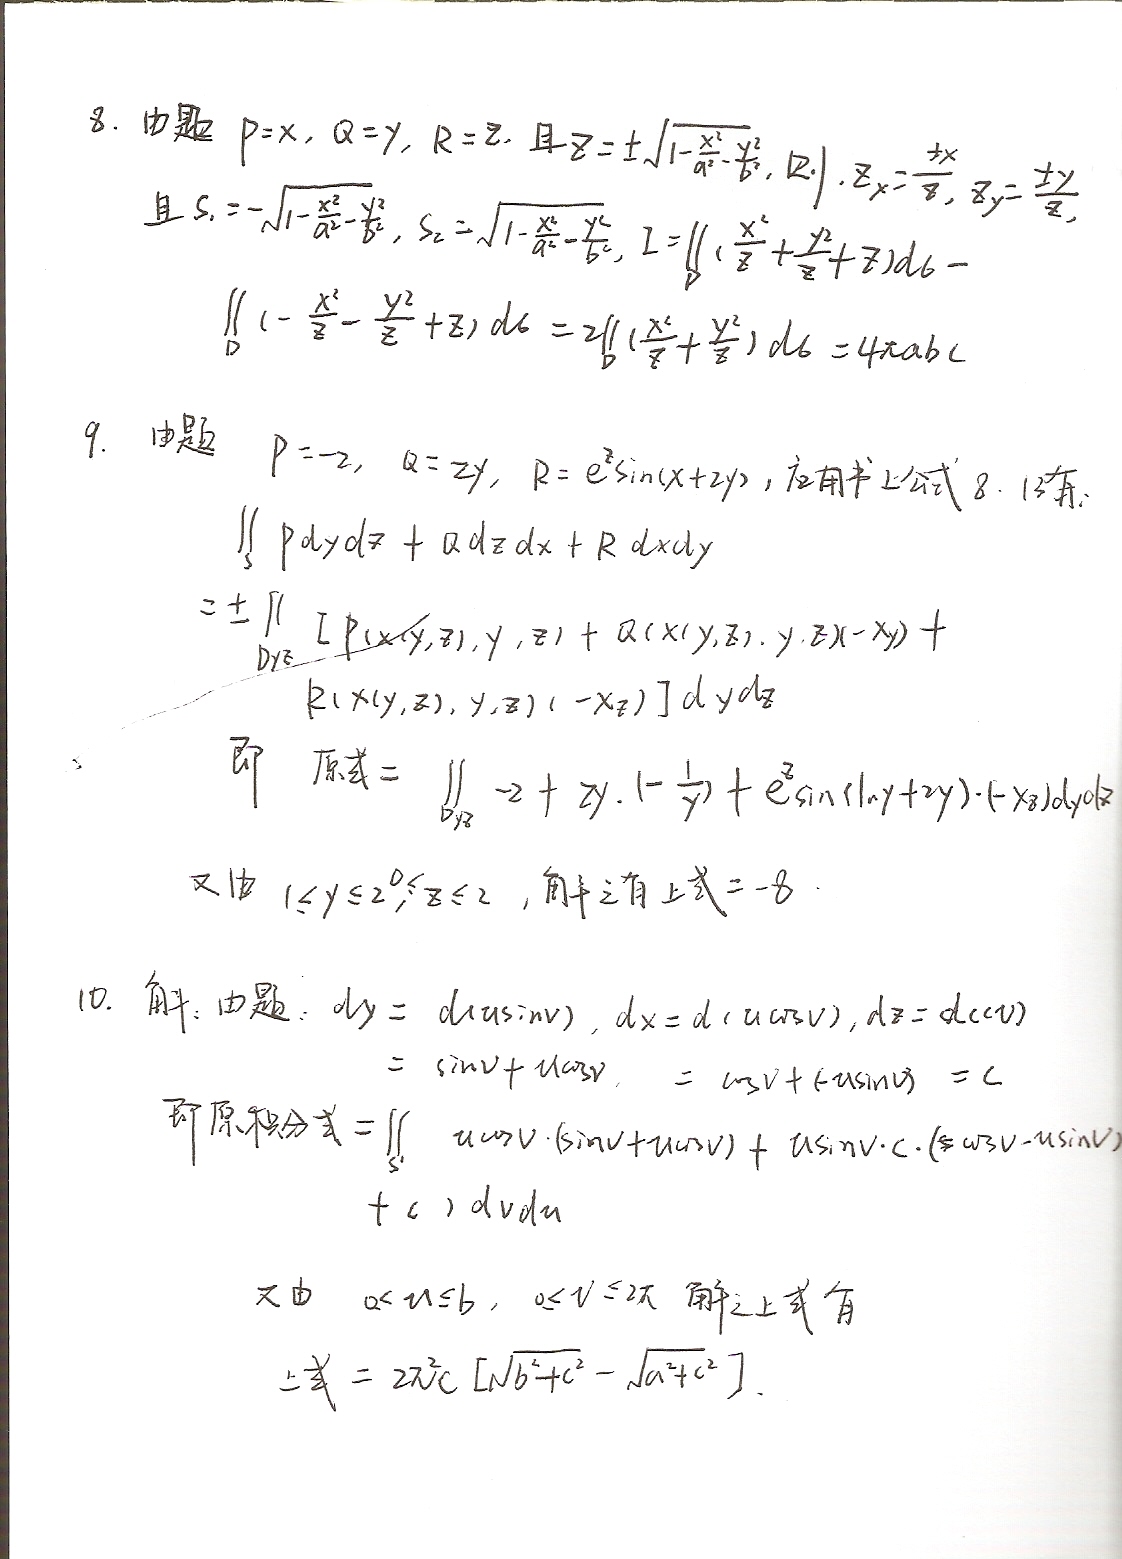 8. 由题 P=x, Q=y, R=z. 且 z=±√(1-x²/a²-y²/b²), 则. zx=±x/z, zy=±y/z,
且 S₁=-√(1-x²/a²-y²/b²), S₂=√(1-x²/a²-y²/b²), I=∬D(x²/z+y²/z+z)dσ-
∬D(-x²/z-y²/z+z)dσ=2∬D(x²/z+y²/z)dσ=4πabc
9. 由题 P=-2, Q=zy, R=e^z sin(x+2y), 应用书上公式 8.13有:
∬S Pdydz+Qdzdx+Rdxdy
=±∬Dyz [P(x(y,z),y,z)+Q(x(y,z).y.z)(-xy)+
R(x(y,z),y,z)(-xz)]dydz
即 原式=∬Dyz -2+zy.(-1/y)+e^z sin(lny+2y)·(-xz)dydz
又由 1≤y≤2, 0≤z≤2, 解之有上式=-8.
10. 解: 由题: dy=d(usinv), dx=d(ucosv), dz=d(cv)
=sinv+ucosv, =cosv+(-usinv) =c
即原积分式=∬S' ucosv·(sinv+ucosv)+usinv·c·(cosv-usinv)
+c)dvdu
又由 a<u≤b, 0≤v≤2π 解之上式有
上式=2π²c[√(b²+c²)-√(a²+c²)].